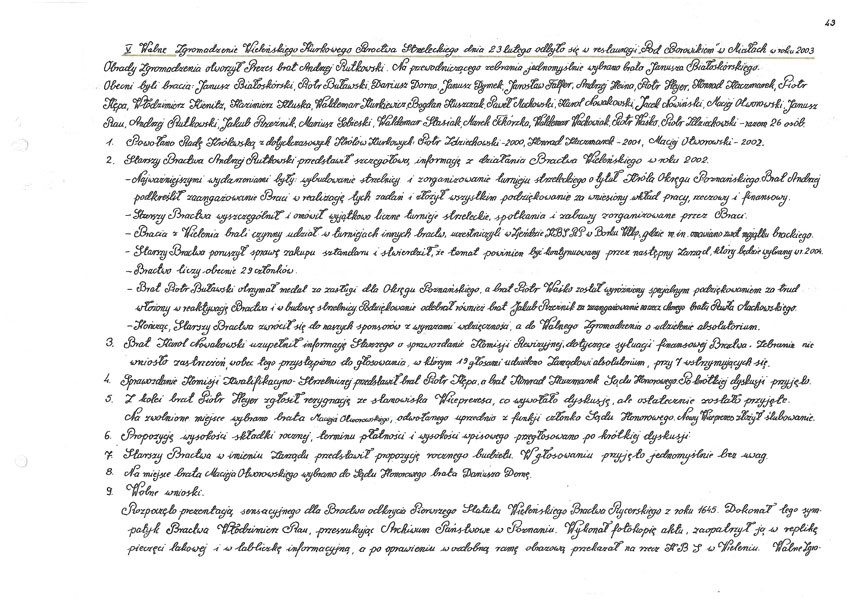 43
V. Walne Zgromadzenie Wieleńskiego Kurkowego Bractwa Streleckiego dnia 23 lutego odbyło się w restauracji „Pod Borowikiem" w Miałach w roku 2003
Obrady Zgromadzenia otworzył Prezes brat Andrzej Rutkowski. Na przewodniczącego zebrania jednomyślnie wybrano brata Janusza Białoskórskiego.
Obecni byli bracia: Janusz Białoskórski, Piotr Buławski, Dariusz Dorna, Janusz Dymek, Jarosław Falfer, Andrzej Heino, Piotr Heyer, Konrad Kaczmarek, Piotr
Kępa, Włodzimierz Kienitz, Kazimierz Kluska, Waldemar Kurkiewicz, Bogdan Kuszczak, Paweł Mackowski, Karol Nowakowski, Jacek Nowiński, Maciej Otworowski, Janusz
Rau, Andrzej Rutkowski, Jakub Rzeźnik, Mariusz Sobieski, Waldemar Stasiak, Marek Tchórzka, Waldemar Wacławiak, Piotr Waśko, Piotr Zdziechowski - razem 26 osób.
1. Powołano Radę Królewską z dotychczasowych Królów Kurkowych: Piotr Zdziechowski - 2000, Konrad Kaczmarek - 2001, Maciej Otworowski - 2002.
2. Starszy Bractwa Andrzej Rutkowski przedstawił szczegółową informację z działania Bractwa Wieleńskiego w roku 2002.
- Najważniejszymi wydarzeniami były: wybudowanie strzelnicy i zorganizowanie turnieju strzeleckiego o tytuł Króla Okręgu Poznańskiego. Brat Andrzej
podkreślił zaangażowanie Braci w realizację tych zadań i złożył wszystkim podziękowanie za wniesiony wkład pracy, rzeczowy i finansowy.
- Starszy Bractwa wyszczególnił i omówił wyjątkowo liczne turnieje streleckie, spotkania i zabawy zorganizowane przez Braci.
- Bracia z Wielenia brali czynny udział w turniejach innych bractw, uczestniczyli w Zjeździe KBS RP w Borku Wlkp., gdzie m.in. omawiano zwrot majątku brackiego.
- Starszy Bractwa poruszył sprawę zakupu sztandaru i stwierdził, że temat powinien być kontynuowany przez następny Zarząd, który będzie wybrany w r. 2004.
- Bractwo liczy obecnie 29 członków.
- Brat Piotr Buławski otrzymał medal za zasługi dla Okręgu Poznańskiego, a brat Piotr Waśko został wyróżniony specjalnym podziękowaniem za trud
włożony w reaktywację Bractwa i w budowę strzelnicy. Podziękowanie odebrał również brat Jakub Rzeźnik za zaangażowanie nieobecnego brata Pawła Mackowskiego.
- Kończąc, Starszy Bractwa zwrócił się do naszych sponsorów z wyrazami wdzięczności, a do Walnego Zgromadzenia o udzielenie absolutorium.
3. Brat Karol Nowakowski uzupełnił informację Starszego o sprawozdanie Komisji Rewizyjnej, dotyczące sytuacji finansowej Bractwa. Zebranie nie
wniosło zastrzeżeń, wobec tego przystąpiono do głosowania, w którym 19 głosami udzielono Zarządowi absolutorium, przy 7 wstrzymujących się.
4. Sprawozdanie Komisji Kwalifikacyjno-Strzelniczej przedstawił brat Piotr Kępa, a brat Konrad Kaczmarek Sądu Honorowego. Po krótkiej dyskusji przyjęto.
5. Z kolei brat Piotr Heyer zgłosił rezygnację ze stanowiska Wiceprezesa, co wywołało dyskusję, ale ostatecznie zostało przyjęte.
Na zwolnione miejsce wybrano brata Macieja Otworowskiego, odwołanego uprzednio z funkcji członka Sądu Honorowego. Nowy Wiceprezes złożył ślubowanie.
6. Propozycję wysokości składki rocznej, terminu płatności i wysokości wpisowego przegłosowano po krótkiej dyskusji
7. Starszy Bractwa w imieniu Zarządu przedstawił propozycję rocznego budżetu. W głosowaniu przyjęto jednomyślnie bez uwag.
8. Na miejsce brata Macieja Otworowskiego wybrano do Sądu Honorowego brata Dariusza Dornę.
9. Wolne wnioski.
Rozpoczęto prezentacją sensacyjnego dla Bractwa odkrycia Pierwszego Statutu Wieleńskiego Bractwa Rycerskiego z roku 1645. Dokonał tego sym-
patyk Bractwa Włodzimierz Rau, przeszukując Archiwum Państwowe w Poznaniu. Wykonał fotokopię aktu, zaopatrzył ją w replikę
pieczęci lakowej i w tabliczkę informacyjną, a po oprawieniu w ozdobną ramę obrazową przekazał na rzecz KBS w Wieleniu. Walne Zgro-